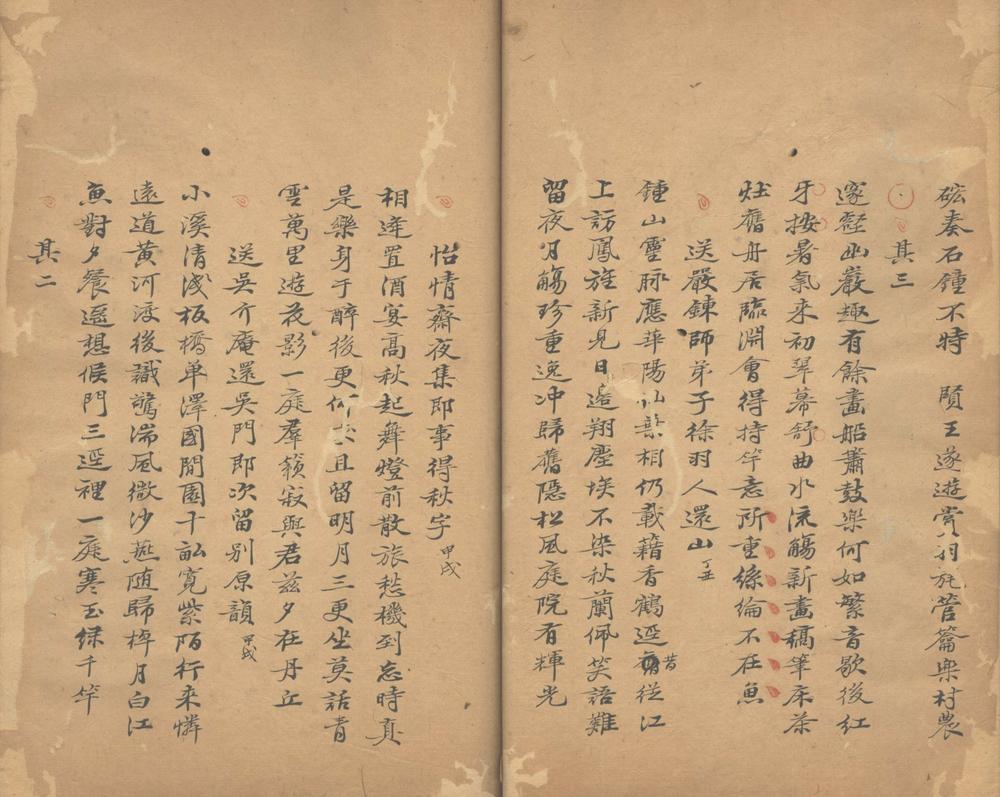 硡奏石鐘不時　賢王遂遊賞羽旄管籥樂村農
其三
邃壑幽巖趣有餘畫船簫鼓樂何如繁音歇後紅
牙按暑氣來初翠幕舒曲水流觴新畫稿筆床茶
灶舊舟居臨淵會得持竿意所重絲綸不在魚
送嚴鍊師弟子徐羽人還山丁丑
鍾山靈脉應華陽相仍載籍香鶴逕昔從江
上訪鳳旌新見日邊翔塵埃不染秋蘭佩笑語難
留夜月觴珍重逸冲歸舊隱松風庭院有輝光
怡情齋夜集即事得秋字甲戌
相逢置酒宴高秋起舞燈前散旅愁機到忘時真
是樂身于醉後更何求且留明月三更坐莫話青
雲萬里遊花影一庭羣籟寂與君茲夕在丹丘
送吳介庵還吳門即次留别原韻甲戌
小溪清淺板橋单澤國閒園十畝寬紫陌行來憐
遠道黃河渡後識驚湍風微沙燕随歸棹月白江
魚對夕餐遥想候門三逕裡一庭寒玉绿千竿
其二